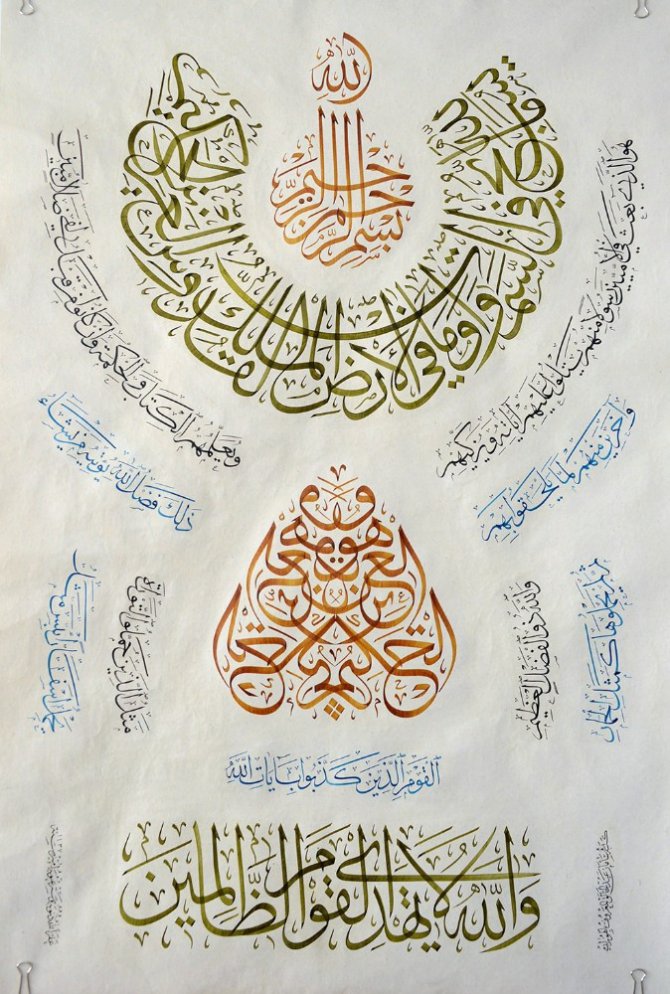 بسم الله الرحمن الرحيم
يسبح لله ما في السموات وما في الأرض الملك القدوس العزيز الحكيم
هو الذي بعث في الأميين رسولا منهم يتلوا عليهم آياته ويزكيهم
ويعلمهم الكتاب والحكمة وإن كانوا من قبل لفي ضلال مبين
وآخرين منهم لما يلحقوا بهم
وهو العزيز الحكيم
ذلك فضل الله يؤتيه من يشاء
والله ذو الفضل العظيم
مثل الذين حملوا التوراة
ثم لم يحملوها كمثل الحمار
يحمل أسفارا بئس مثل
القوم الذين كذبوا بآيات الله
والله لا يهدي القوم الظالمين